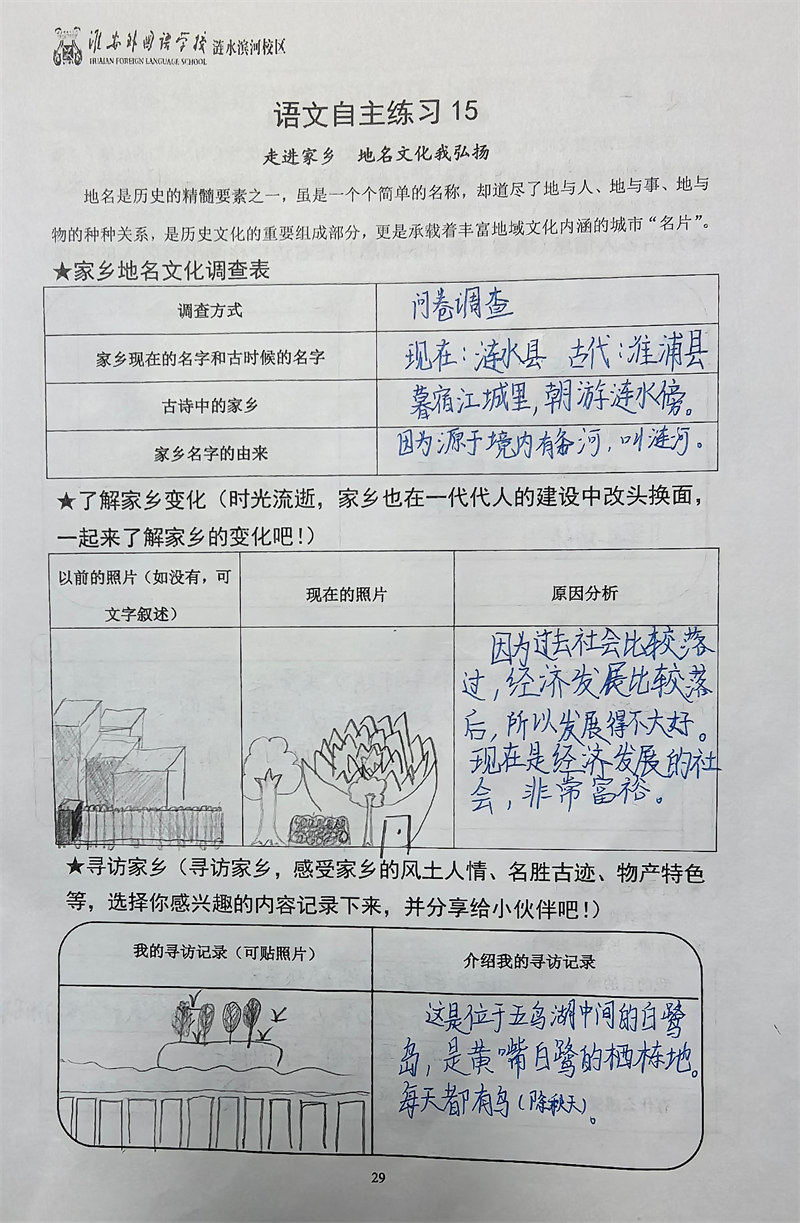 淮安外国语学校 涟水滨河校区
HUAIAN FOREIGN LANGUAGE SCHOOL
语文自主练习 15
走进家乡 地名文化我弘扬
地名是历史的精髓要素之一，虽是一个个简单的名称，却道尽了地与人、地与事、地与
物的种种关系，是历史文化的重要组成部分，更是承载着丰富地域文化内涵的城市“名片”。
★家乡地名文化调查表
调查方式
问卷调查
家乡现在的名字和古时候的名字
现在：涟水县 古代：淮浦县
古诗中的家乡
暮宿江城里，朝游涟水傍。
家乡名字的由来
因为源于境内有条河，叫涟河。
★了解家乡变化（时光流逝，家乡也在一代代人的建设中改头换面，
一起来了解家乡的变化吧！）
以前的照片（如没有，可
文字叙述）
现在的照片
原因分析
因为过去社会比较落
过，经济发展比较落
后，所以发展得不大好。
现在是经济发展的社
会，非常富裕。
★寻访家乡（寻访家乡，感受家乡的风土人情、名胜古迹、物产特色
等，选择你感兴趣的内容记录下来，并分享给小伙伴吧！）
我的寻访记录（可贴照片）
介绍我的寻访记录
这是位于五岛湖中间的白鹭
岛，是黄嘴白鹭的栖栋地。
每天都有鸟（除秋天）。
29